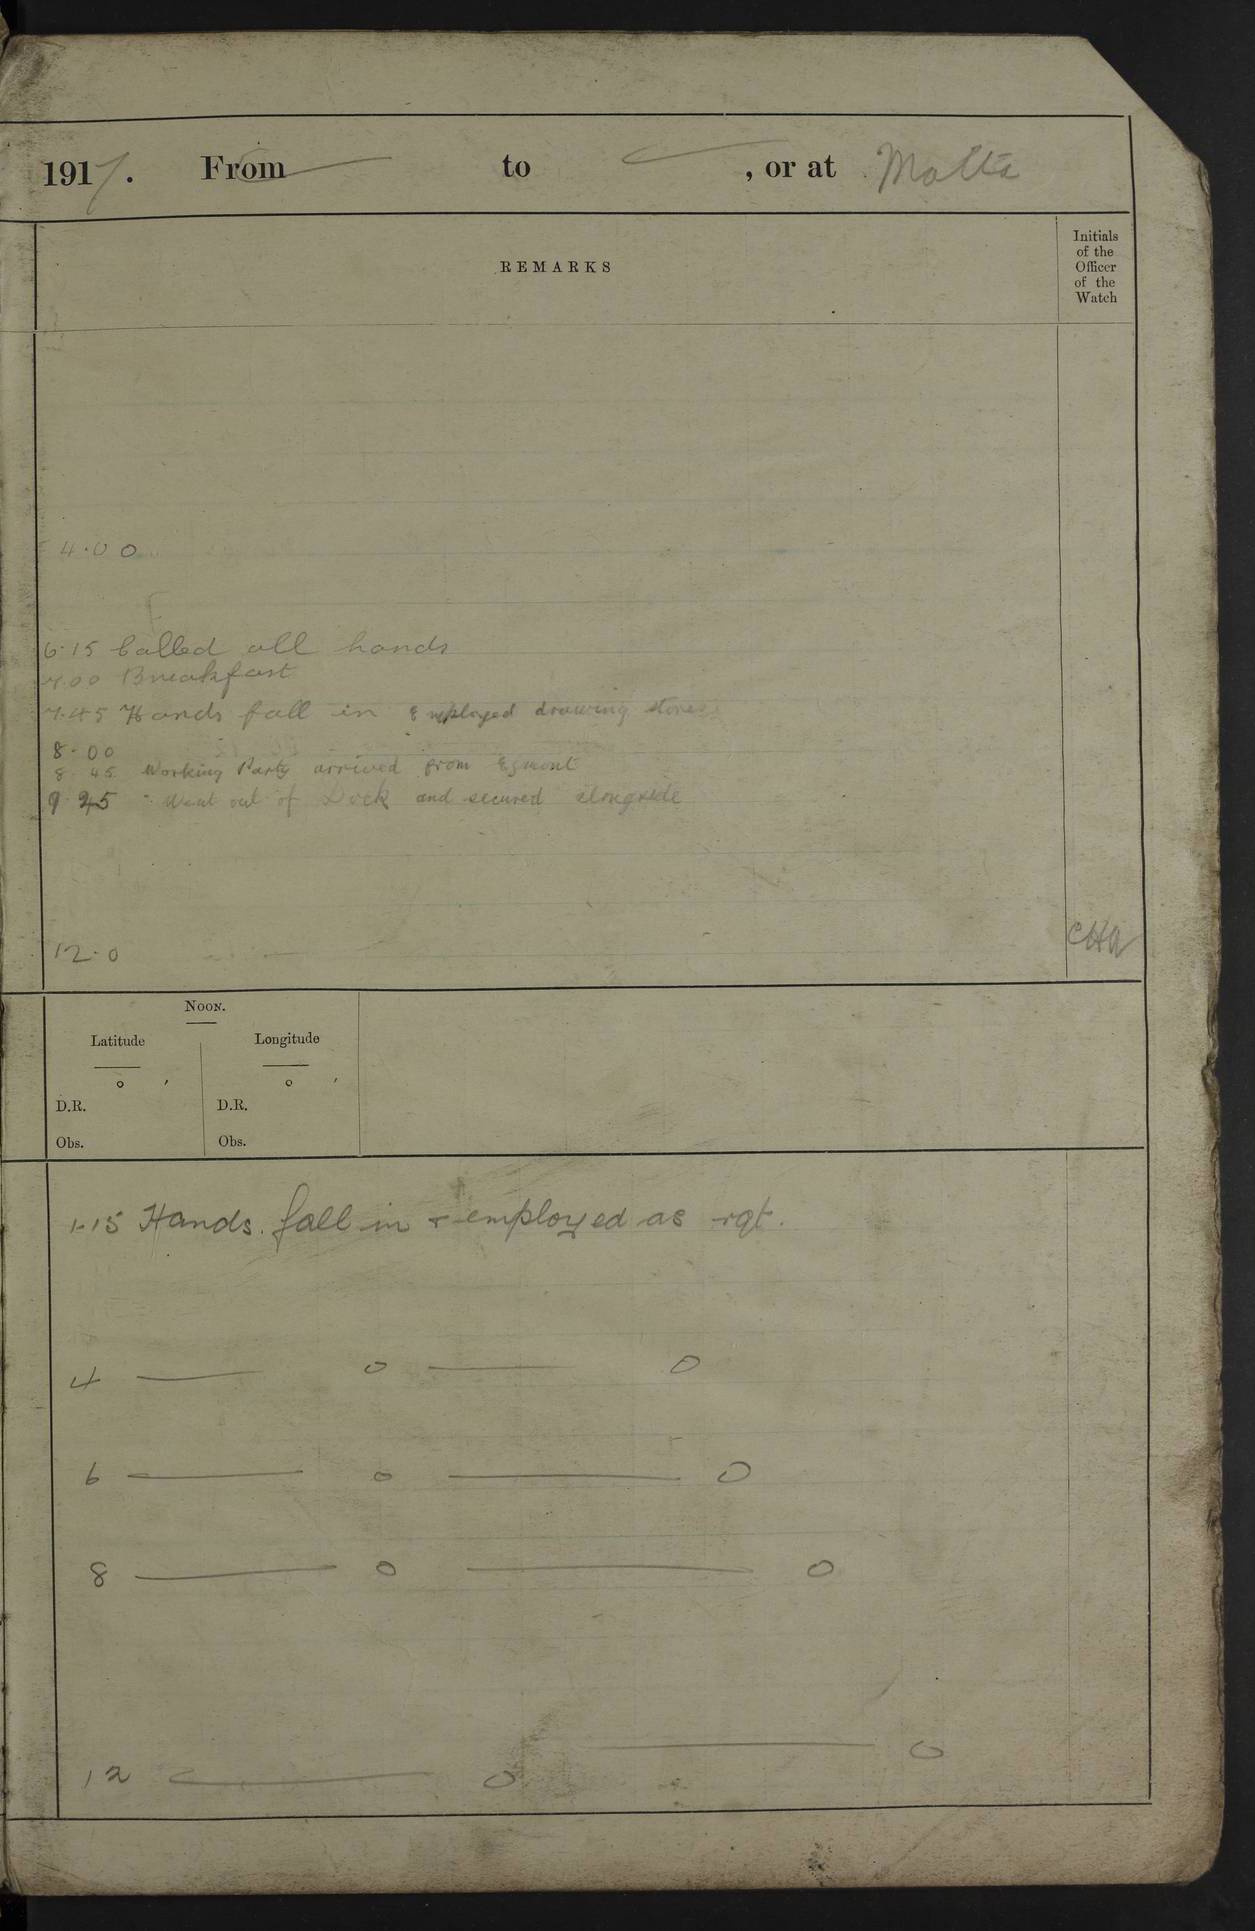 1917. From — to — , or at Malta
REMARKS
Initials
of the
Officer
of the
Watch
4.00
6.15 Called all hands
7.00 Breakfast
7.45 Hands fall in & employed drawing stores
8.00
8 45 Working Party arrived from Egmont
9 45 Went out of Dock and secured alongside
12.0
CHA
NOON.
Latitude Longitude
° ′ ° ′
D.R. D.R.
Obs. Obs.
1.15 Hands fall in & employed as rqt.
4 — 0 — 0
6 — 0 — 0
8 — 0 — 0
12 — 0 — 0